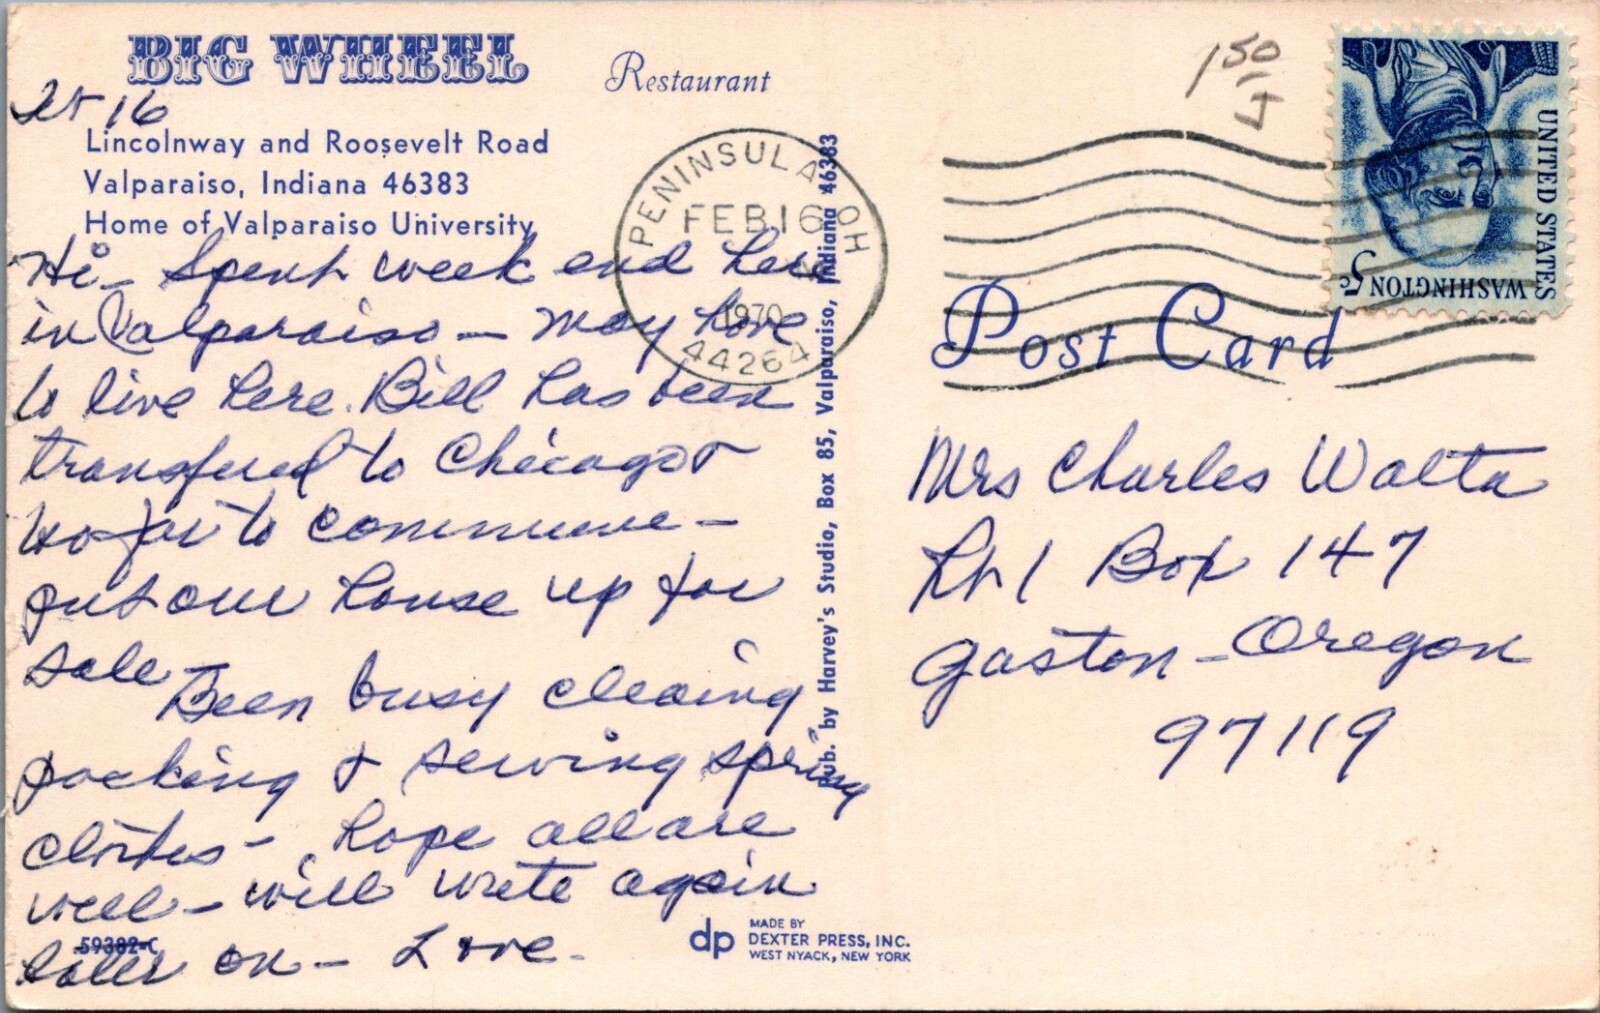 BIG WHEEL
Restaurant
16
Lincolnway and Roosevelt Road
Valparaiso, Indiana 46383
Home of Valparaiso University
Hi - Spent week end here
in Valparaiso - may have
to live here. Bill has been
transfered to Chicago &
to far to commute -
put our house up for
sale
Been busy cleaing
packing & sewing spring
clothes - hope all are
well - will write again
later on - Love.
59382-C
Pub. by Harvey's Studio, Box 85, Valparaiso, Indiana 46383
dp
MADE BY
DEXTER PRESS, INC.
WEST NYACK, NEW YORK
PENINSULA OH
FEB 16
1970
44264
1 50
UNITED STATES
WASHINGTON 5c
Post Card
Mrs Charles Walta
Rt 1 Box 147
Gaston - Oregon
97119